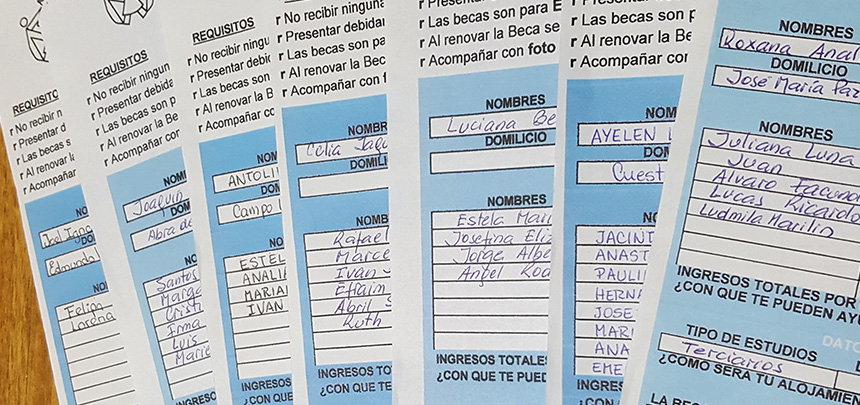 REQUISITO
r No recibir n
r Presentar d
r Las becas s
r Al renovar la
r Acompañar
NO
José Ignac
DO
Edmundo
NO
Felipe
Lorena
REQUISITOS
r No recibir ning
r Presentar debida
r Las becas son p
r Al renovar la Be
r Acompañar con
NOM
Joaquin
DOM
Abra de
NOM
Santos
Marga
Cristi
Irma
Luis
Marie
INGRESOS
¿CON QUE
REQUISITOS
r No recibir ningun
r Presentar debic
r Las becas son
r Al renovar la B
r Acompañar con
NOM
ANTOLI
DOM
Campo
NO
ESTEL
ANALI
MARIA
IVAN
INGRESOS
¿CON QUE
REQUISITOS
r No recibir ningu
r Presentar debidar
r Las becas son pa
r Al renovar la Be
r Acompañar con f
NOMBR
Celia Jaqu
DOMILI
NOMB
Rafael
Marce
Ivan
Efraim
Abril S
Ruth
INGRESOS TOT
¿CON QUE TE
r Presentar debida
r Las becas son para E
r Al renovar la Beca se
r Acompañar con foto
NOMBRES
Luciana Be
DOMICILIO
NOMBRES
Estela Mari
Josefina Eliz
Jorge Albe
Angel Roq
INGRESOS TOTALES
¿CON QUE TE PUED
r Presentar debida
r Las becas son p
r Al renovar la Be
r Acompañar con
NOMB
AYELEN
DOM
Cuest
NO
JACINT
ANAST
PAULI
HERNA
JOSE
MARI
ANA
EME
INGRES
¿CON
NOMBRES
Roxana Anal
DOMILICIO
José María Paz
NOMBRES
Juliana Luna
Juan
Alvaro Facund
Lucas Ricardo
Ludmila Marilin
INGRESOS TOTALES POR
¿CON QUE TE PUEDEN AYU
DATO
TIPO DE ESTUDIOS
Terciarios
¿COMO SERA TU ALOJAMIEN
LA BE